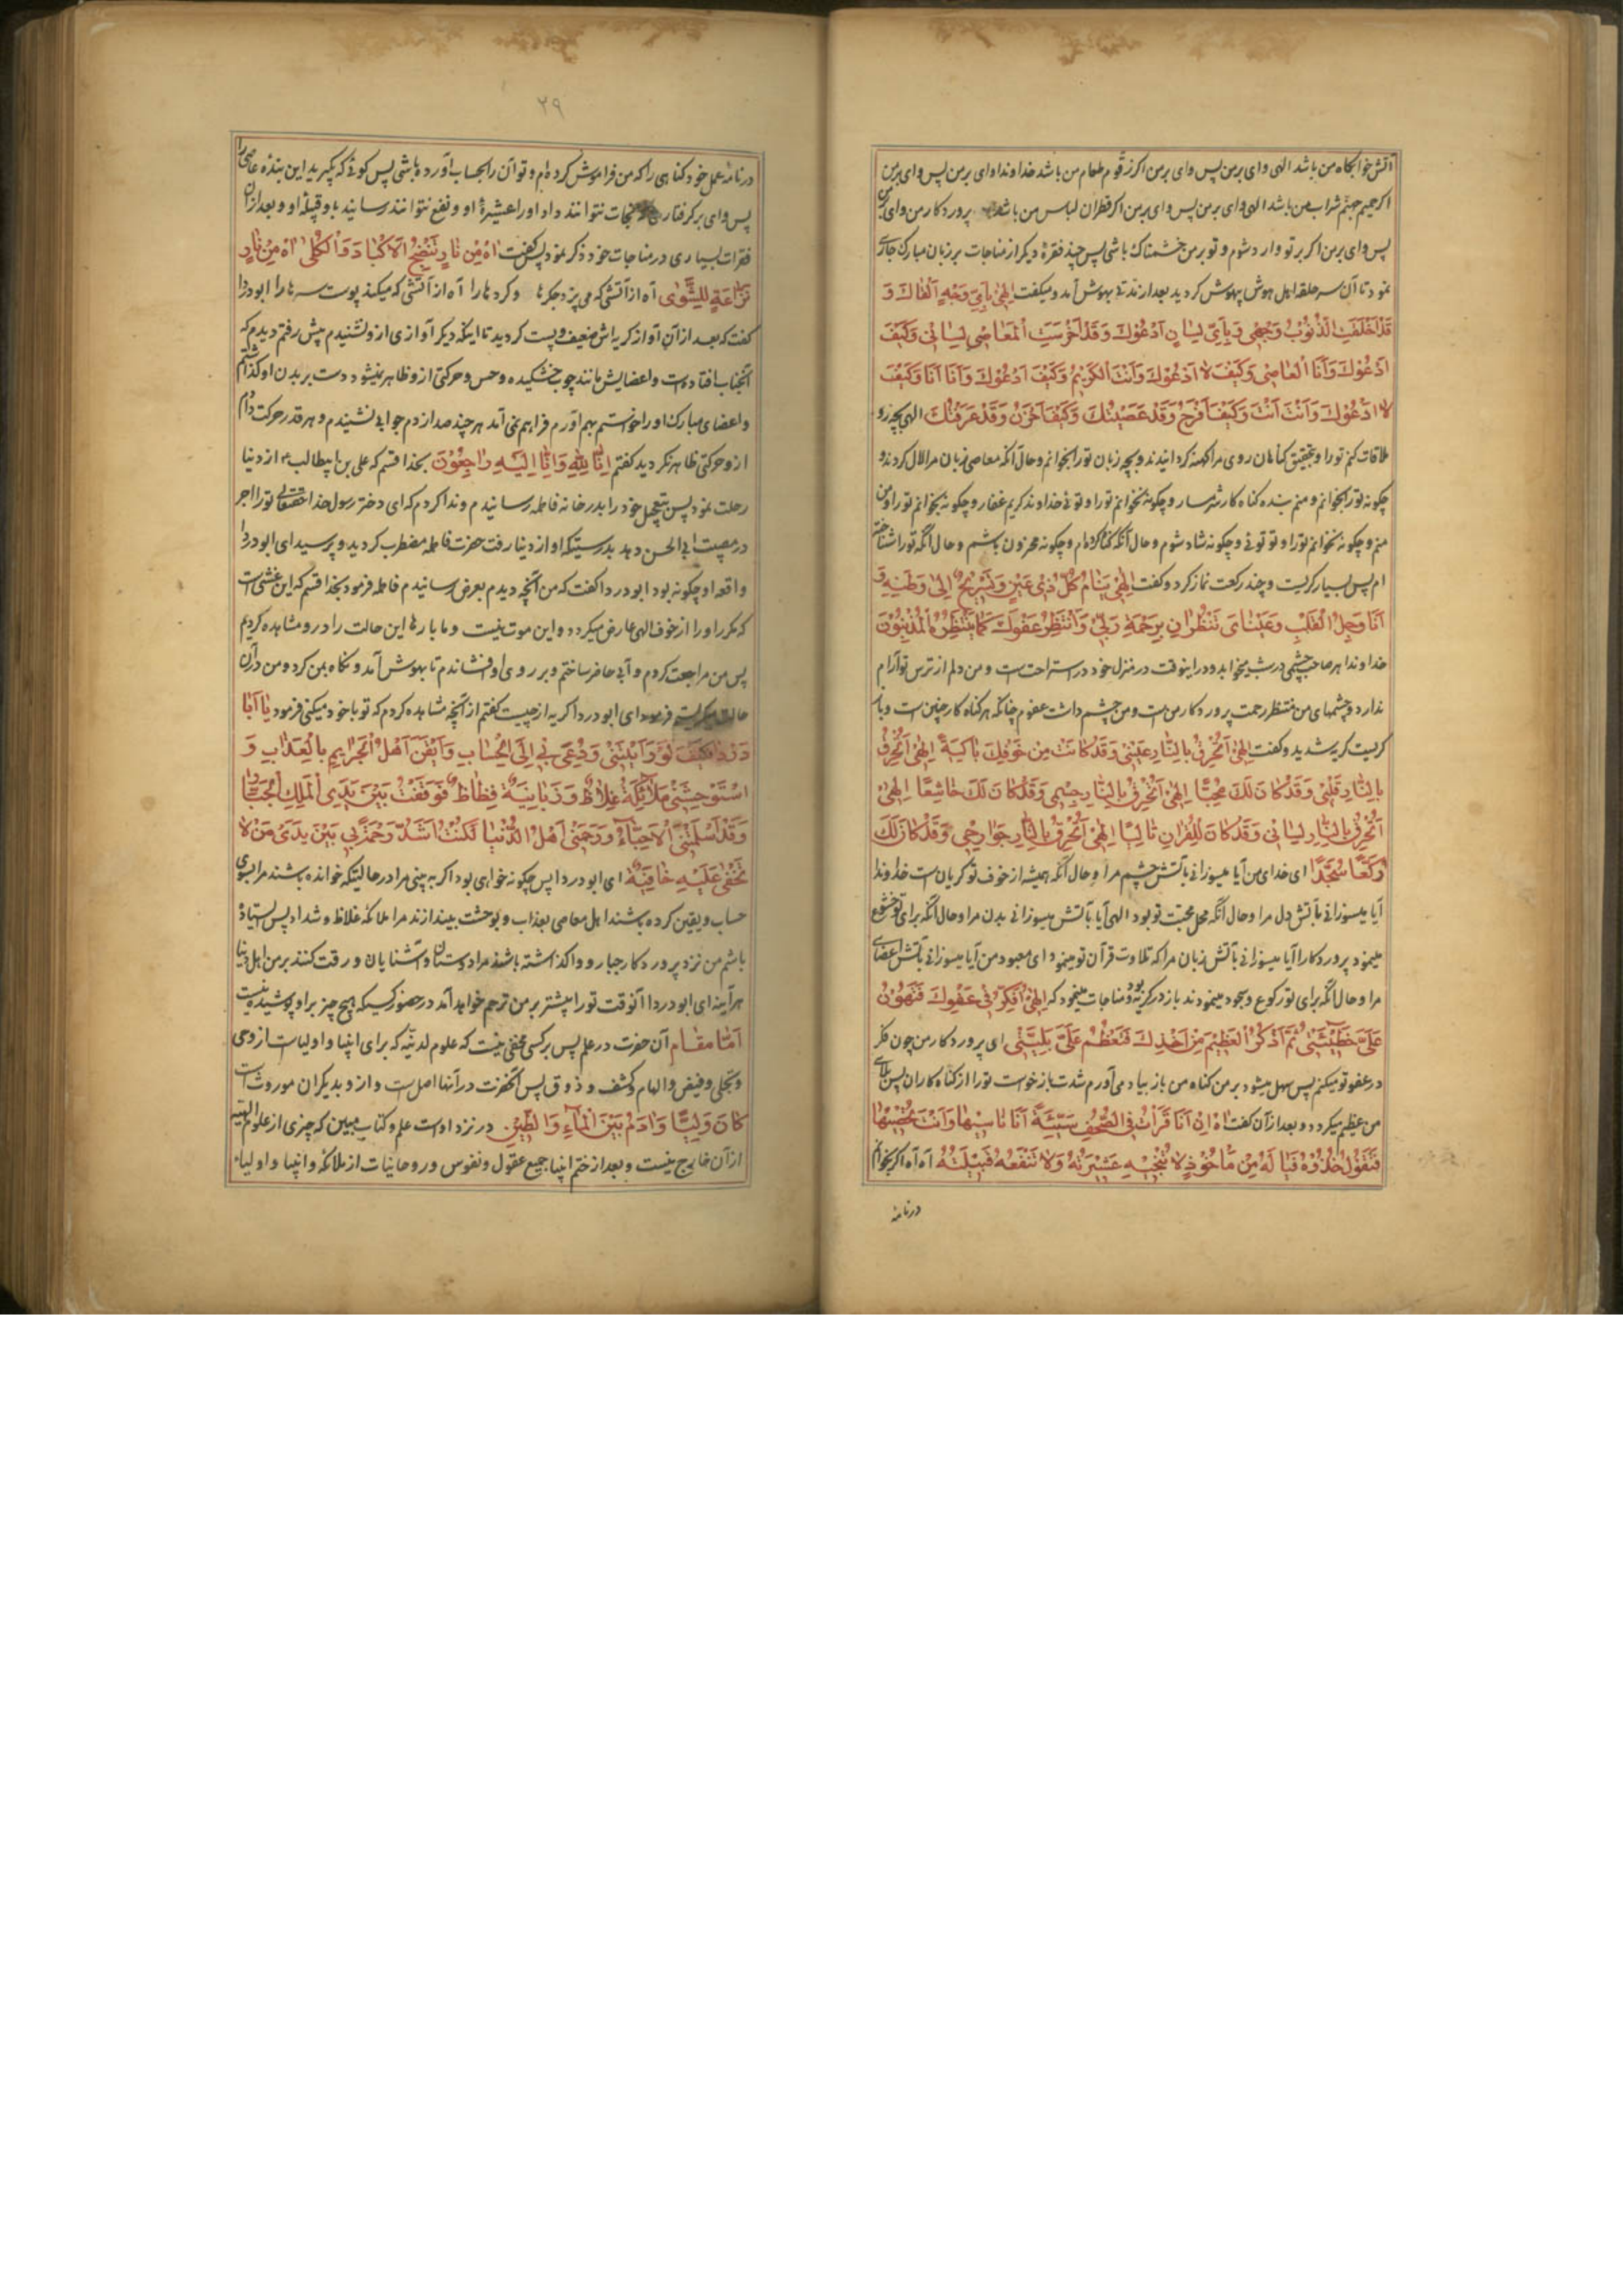 آتش خوابگاه من باشد الهی وای بر من پس وای بر من اکر زقوم طعام من باشد خداوندا وای بر من پس وای بر من
اکر حمیم جهنم شراب من باشد الهی وای بر من پس وای بر من اکر قطران لباس من باشد پروردکار من وای بر من
پس وای بر من اکر بر تو وارد شوم و تو بر من خشمناک باشی پس چند فقرهٔ دیکر از مناجات بر زبان مبارک جاری
نمود تا آن سر حلقه اهل هوش بیهوش کردید بعد از مدتی بهوش آمد و میکفت اِلهی بِاَیِّ وَجْهٍ اَلْقاكَ وَ
قَدْ اَخْلَقَتِ الذُّنُوبُ وَجْهی وَ بِاَیِّ لِسانٍ اَدْعُوكَ وَ قَدْ اَخْرَسَتِ الْمَعاصی لِسانی وَ كَیْفَ
اَدْعُوكَ وَ اَنَا الْعاصی وَ كَیْفَ لا اَدْعُوكَ وَ اَنْتَ الْكَریمُ وَ كَیْفَ اَدْعُوكَ وَ اَنَا اَنَا وَ كَیْفَ
لا اَدْعُوكَ وَ اَنْتَ اَنْتَ وَ كَیْفَ اَفْرَحُ وَ قَدْ عَصَیْتُكَ وَ كَیْفَ اَحْزَنُ وَ قَدْ عَرَفْتُكَ الهی بچه رو
ملاقات کنم تو را و بتحقیق کناهان روی مرا کهنه کردانیدند و بچه زبان تو را بخوانم و حال آنکه معاصی زبان مرا لال کردند و
چکونه تو را بخوانم و منم بنده کناه کار شرمسار و چکونه نخوانم تو را و توئی خداوند کریم غفار و چکونه بخوانم تو را و من
منم و چکونه نخوانم تو را و تو توئی و چکونه شاد شوم و حال آنکه کناه کرده ام و چکونه محزون باشم و حال آنکه تو را شناخته
ام پس بسیار کریست و چند رکعت نماز کرد و کفت اِلهی یَنامُ كُلُّ ذی عَیْنٍ وَ یَسْتَریحُ اِلی وَطَنِهِ وَ
اَنَا وَجِلُ الْقَلْبِ وَ عَیْنایَ تَنْظُرانِ بِرَحْمَةِ رَبّی وَ اَنْتَظِرُ عَفْوَكَ كَما یَنْتَظِرُهُ الْمُذْنِبُونَ
خداوندا هر صاحب چشمی در شب میخوابد و در اینوقت در منزل خود در استراحت است و من دلم از ترس تو آرام
ندارد و چشمهای من منتظر رحمت پروردکار من است و من چشم داشت عفوم چنانکه هر کناه کار چنین است و باز
کریست کریه شدید و کفت اِلهی اَتُحْرِقُ بِالنّارِ عَیْنی وَ قَدْ كانَتْ مِنْ خَوْفِكَ باكِیَةً اِلهی اَتُحْرِقُ
بِالنّارِ قَلْبی وَ قَدْ كانَ لَكَ مُحِبًّا اِلهی اَتُحْرِقُ بِالنّارِ جِسْمی وَ قَدْ كانَ لَكَ خاشِعًا اِلهی
اَتُحْرِقُ بِالنّارِ لِسانی وَ قَدْ كانَ لِلْقُرانِ تالِیًا اِلهی اَتُحْرِقُ بِالنّارِ جَوارِحی وَ قَدْ كانَ لَكَ
رُكَّعًا سُجَّدًا ای خدای من آیا میسوزانی بآتش چشم مرا و حال آنکه همیشه از خوف تو کریان است خداوندا
آیا میسوزانی بآتش دل مرا و حال آنکه محل محبت تو بود الهی آیا بآتش میسوزانی بدن مرا و حال آنکه برای تو خشوع
مینمود پروردکارا آیا میسوزانی بآتش زبان مرا که تلاوت قرآن تو مینمود ای معبود من آیا میسوزانی بآتش اعضای
مرا و حال آنکه برای تو رکوع و سجود مینمودند باز در کریه بود و مناجات مینمود که اِلهی اُفَكِّرُ فی عَفْوِكَ فَتَهُونُ
عَلَیَّ خَطیئَتی ثُمَّ اَذْكُرُ الْعَظیمَ مِنْ اَخْذِكَ فَتَعْظُمُ عَلَیَّ بَلِیَّتی ای پروردکار من چون فکر
در عفو تو میکنم پس سهل میشود بر من کناه من باز بیاد می آورم شدت بازخواست تو را از کناه کاران پس بلای
من عظیم میکردد و بعد از آن کفت اه اِنْ اَنَا قَرَأْتُ فِی الصُّحُفِ سَیِّئَةً اَنَا ناسیها وَ اَنْتَ مُحْصیها
فَتَقُولُ خُذُوهُ فَیا لَهُ مِنْ مَأْخُوذٍ لا تُنْجیهِ عَشیرَتُهُ وَ لا تَنْفَعُهُ قَبیلَتُهُ آه آه اکر بخوانم
در نامه
۲۹
در نامهٔ عمل خود کناهی را که من فراموش کرده ام و تو آن را بحساب آورده باشی پس کوئی که بگیرید این بنده عاصی را
پس وای بر کرفتاری که نجات نتوانند داد او را عشیرهٔ او و نفع نتوانند رسانید باو قبیلهٔ او و بعد از آن
فقرات بسیاری در مناجات خود ذکر نمود پس کفت اه مِنْ نارٍ تُنْضِجُ الْاَكْبادَ وَ الْكُلی اه مِنْ نارٍ
نَزّاعَةٍ لِلشَّوی آه از آتشی که می پزد جکرها و کرده ها را آه از آتشی که میکند پوست سرها را ابو دردا
کفت که بعد از آن آواز کریه اش ضعیف و پست کردید تا اینکه دیکر آوازی از و نشنیدم پیش رفتم دیدم که
آنجناب افتاده است و اعضایش مانند چوب خشکیده و حس و حرکتی از و ظاهر نمیشود دست بر بدن او کذاشتم
و اعضای مبارک او را خواستم بهم آورم فراهم نمی آمد هر چند صدا زدم جوابی نشنیدم و هر قدر حرکت دادم
از و حرکتی ظاهر نکردید کفتم اِنّا لِلّهِ وَ اِنّا اِلَیْهِ راجِعُونَ بخدا قسم که علی بن ابیطالب ع از دنیا
رحلت نمود پس بتعجیل خود را بدر خانه فاطمه رسانیدم و ندا کردم که ای دختر رسول خدا حقتعالی تو را اجر
در مصیبت ابی الحسن دهد بدرستیکه او از دنیا رفت حضرت فاطمه مضطرب کردید و پرسید ای ابو دردا
واقعه او چکونه بود ابو دردا کفت که من آنچه دیدم بعرض رسانیدم فاطمه فرمود بخدا قسم که این غشی است
که مکرر او را از خوف الهی عارض میکردد و این موت نیست و ما بارها این حالت را در و مشاهده کردیم
پس من مراجعت کردم و آبی حاضر ساختم و بر روی او افشاندم تا بهوش آمد و نکاه بمن کرد و من در آن
حالت میکریستم فرمود ای ابو دردا کریه از چیست کفتم از آنچه مشاهده کردم که تو با خود میکنی فرمود یا اَبا
دَرْدا فَكَیْفَ لَوْ رَاَیْتَنی وَ دُعِیَ بی اِلَی الْحِسابِ وَ اَیْقَنَ اَهْلُ الْجَرایِمِ بِالْعَذابِ وَ
اسْتَوْحَشَتْنی مَلائِكَةٌ غِلاظٌ وَ زَبانِیَةٌ فِظاظٌ فَوَقَفْتُ بَیْنَ یَدَیِ الْمَلِكِ الْجَبّارِ
وَ قَدْ اَسْلَمَتْنِی الْاَحِبّاءُ وَ رَحِمَنی اَهْلُ الدُّنْیا لَكُنْتَ اَشَدَّ رَحْمَةً لی بَیْنَ یَدَیْ مَنْ لا
تَخْفی عَلَیْهِ خافِیَةٌ ای ابو دردا پس چکونه خواهی بود اکر به بینی مرا در حالتیکه خوانده باشند مرا بسوی
حساب و یقین کرده باشند اهل معاصی بعذاب و بوحشت بیندازند مرا ملائکه غلاظ و شداد پس ایستاده
باشم من نزد پروردکار جبار و واکذاشته باشند مرا دوستان و آشنایان و رقت کنند بر من اهل دنیا
هر آینه ای ابو دردا آنوقت تو را بیشتر بر من ترحم خواهد آمد در حضور کسیکه هیچ چیز بر او پوشیده نیست
اَمّا مقام آن حضرت در علم پس بر کسی مخفی نیست که علوم لدنیّه که برای انبیا و اولیاست از وحی
و تجلی و فیض و الهام و کشف و ذوق پس آنحضرت در آنها اصل است و از و بدیکران موروث است
كانَ وَلِیًّا وَ ادَمُ بَیْنَ الْماءِ وَ الطّینِ در نزد اوست علم و کتاب مبین که چیزی از علوم الهیّه
از آن خارج نیست و بعد از ختم انبیا جمیع عقول و نفوس و روحانیات از ملائکه و انبیا و اولیاء